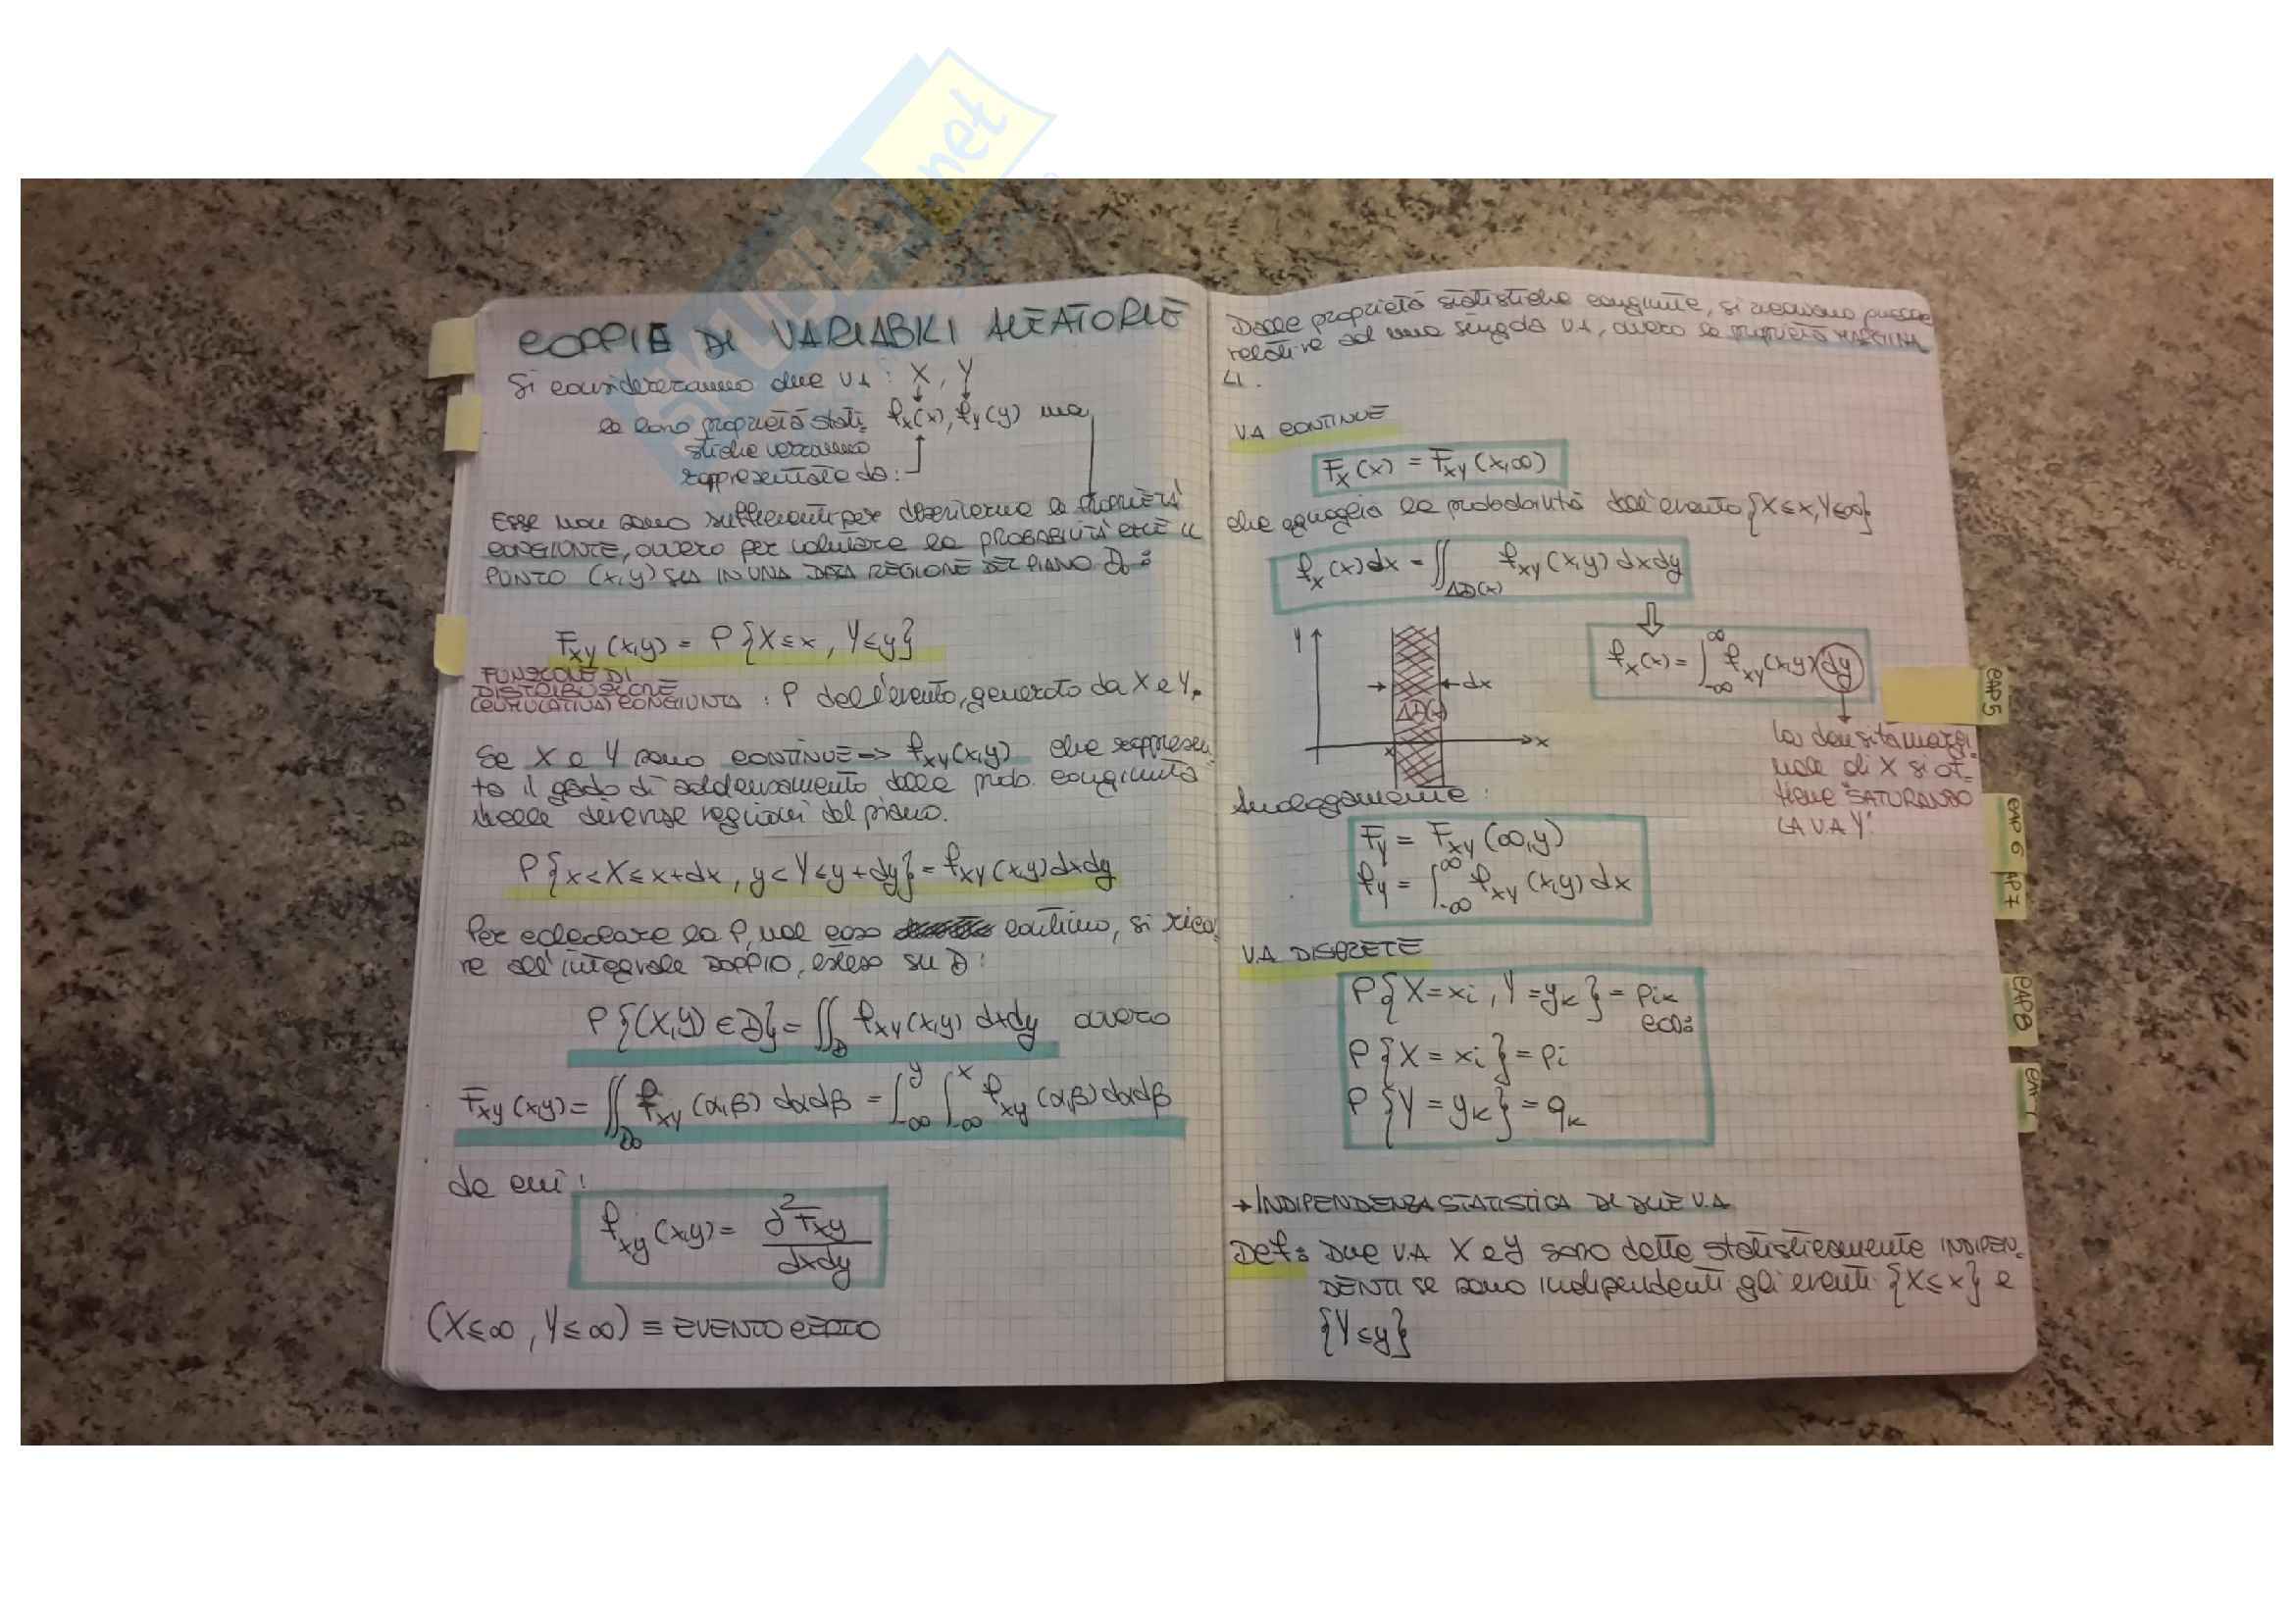 SKUOLA.net
COPPIE DI VARIABILI ALEATORIE
Si considereranno due VA : X, Y
le loro proprietà stati fx(x), fy(y) ma
stiche verranno
rappresentate da:
Esse non sono sufficienti per descriverne le PROPRIETÀ
CONGIUNTE, ovvero per valutare la PROBABILITÀ CHE IL
PUNTO (x,y) SIA IN UNA DATA REGIONE DEL PIANO D₀:
Fxy (x,y) = P{X≤x, Y≤y}
FUNZIONE DI
DISTRIBUZIONE
(CUMULATIVA) CONGIUNTA : P dell'evento, generato da X e Y.
Se X e Y sono CONTINUE => fxy(x,y) che rappresen
ta il grado di addensamento della prob. congiunta
nelle diverse regioni del piano.
P{x<X≤x+dx, y<Y≤y+dy} = fxy(x,y)dxdy
Per calcolare la P, nel caso continuo, si ricor
re all'integrale DOPPIO, esteso su D:
P{(X,Y)∈D} = ∬_D fxy(x,y) dxdy ovvero
Fxy(x,y) = ∬_D₀ fxy(α,β) dαdβ = ∫_-∞^y ∫_-∞^x fxy(α,β)dαdβ
da cui:
fxy(x,y) = ∂²Fxy / dxdy
(X≤∞, Y≤∞) ≡ EVENTO CERTO
Dalle proprietà statistiche congiunte, si ricavano quelle
relative ad una singola VA, ovvero le proprietà MARGINA
LI.
V.A CONTINUE
Fx(x) = Fxy(x,∞)
che eguaglia la probabilità dell'evento {X≤x, Y≤∞}
fx(x)dx = ∬_ΔD(x) fxy(x,y)dxdy
y
dx
ΔD(x)
x
x
fx(x) = ∫_-∞^∞ fxy(x,y)dy
la densità margi
nale di X si ot-
tiene "SATURANDO
LA V.A Y"
Analogamente:
Fy = Fxy(∞,y)
fy = ∫_-∞^∞ fxy(x,y)dx
V.A DISCRETE
P{X=xi, Y=yk} = pik
così
P{X=xi} = pi
P{Y=yk} = qk
→ INDIPENDENZA STATISTICA DI DUE V.A
Def: Due V.A X e Y sono dette statisticamente INDIPEN-
DENTI se sono indipendenti gli eventi {X≤x} e
{Y≤y}
CAP 5
CAP 6
AP 7
CAP 8